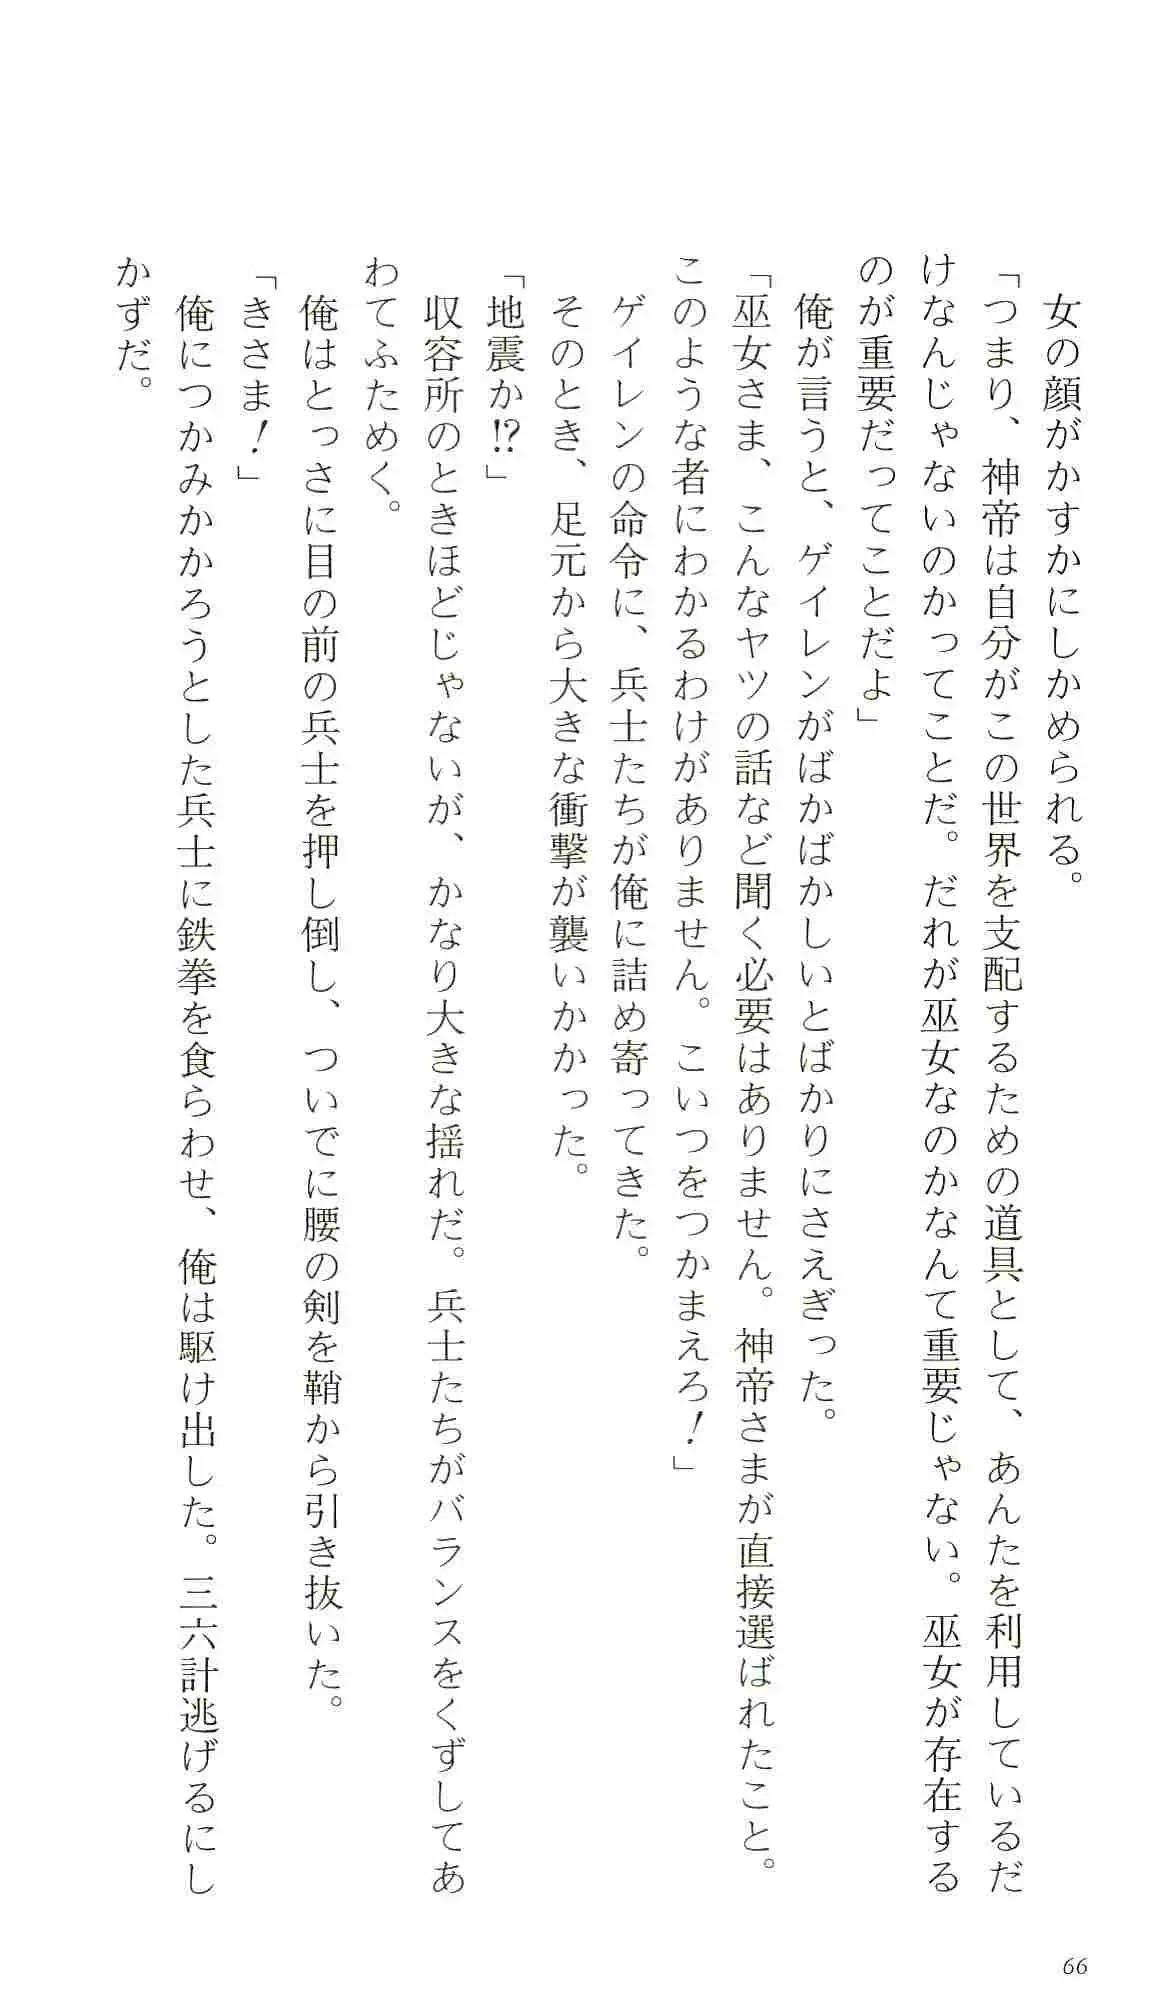 女の顔がかすかにしかめられる。
「つまり、神帝は自分がこの世界を支配するための道具として、あんたを利用しているだ
けなんじゃないのかってことだ。だれが巫女なのかなんて重要じゃない。巫女が存在する
のが重要だってことだよ」
俺が言うと、ゲイレンがばかばかしいとばかりにさえぎった。
「巫女さま、こんなヤツの話など聞く必要はありません。神帝さまが直接選ばれたこと。
このような者にわかるわけがありません。こいつをつかまえろ！」
ゲイレンの命令に、兵士たちが俺に詰め寄ってきた。
そのとき、足元から大きな衝撃が襲いかかった。
「地震か⁉」
収容所のときほどじゃないが、かなり大きな揺れだ。兵士たちがバランスをくずしてあ
わてふためく。
俺はとっさに目の前の兵士を押し倒し、ついでに腰の剣を鞘から引き抜いた。
「きさま！」
俺につかみかかろうとした兵士に鉄拳を食らわせ、俺は駆け出した。三六計逃げるにし
かずだ。
66